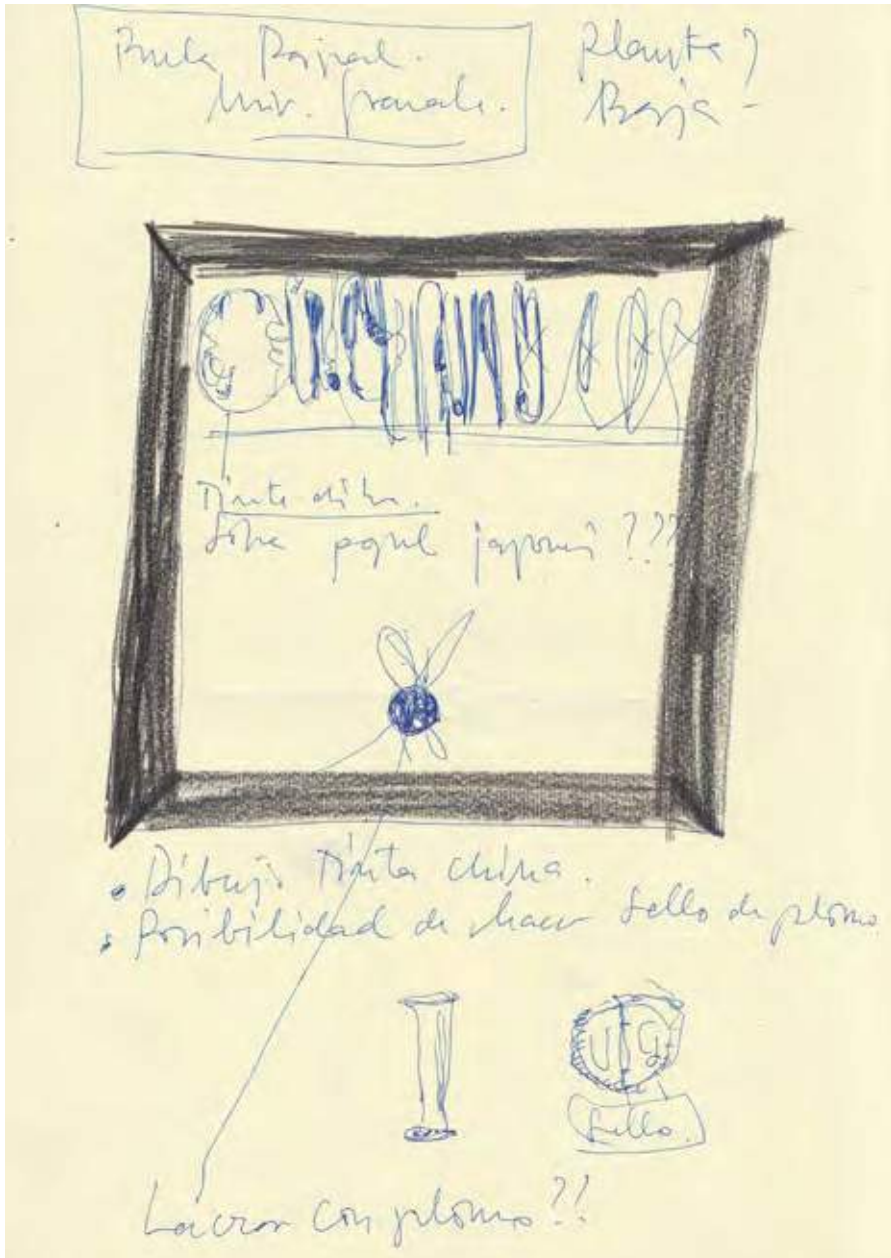 Bula Papal.
Univ. Granada.
Planta?
Baja -
Tinta china.
Sobre papel japonés ???
• Dibujo Tinta china.
• Posibilidad de hacer Sello de plomo.
UG
Sello.
Lacrar con plomo??